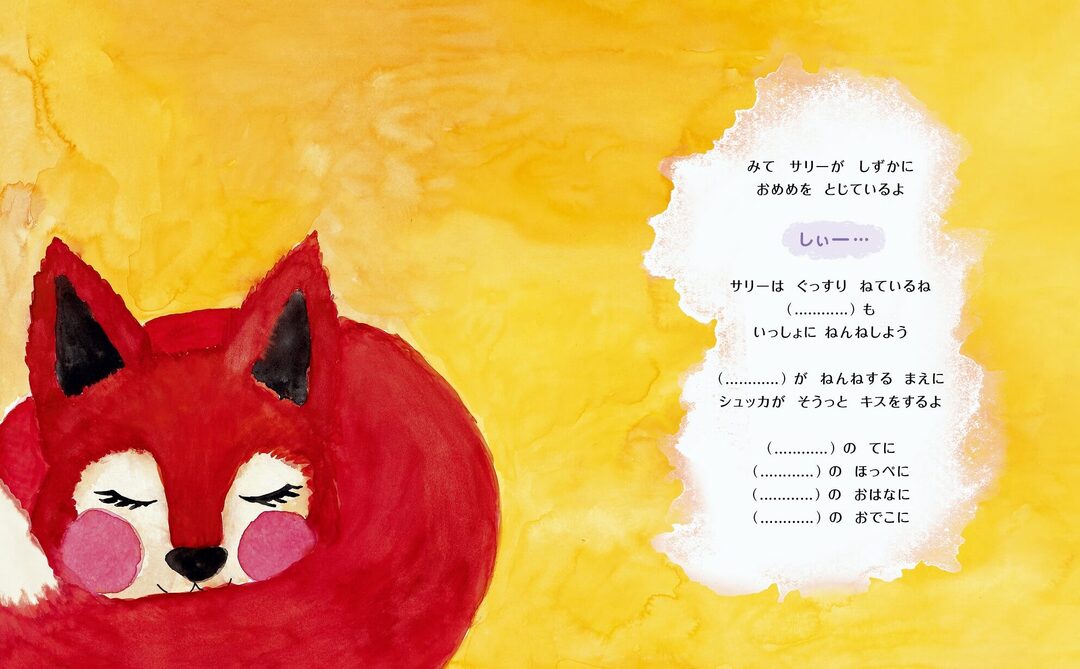 みて　サリーが　しずかに
おめめを　とじているよ
しぃー…
サリーは　ぐっすり　ねているね
（…………）も
いっしょに ねんねしよう
（…………）が　ねんねする　まえに
シュッカが　そうっと　キスをするよ
（…………）の　てに
（…………）の　ほっぺに
（…………）の　おはなに
（…………）の　おでこに